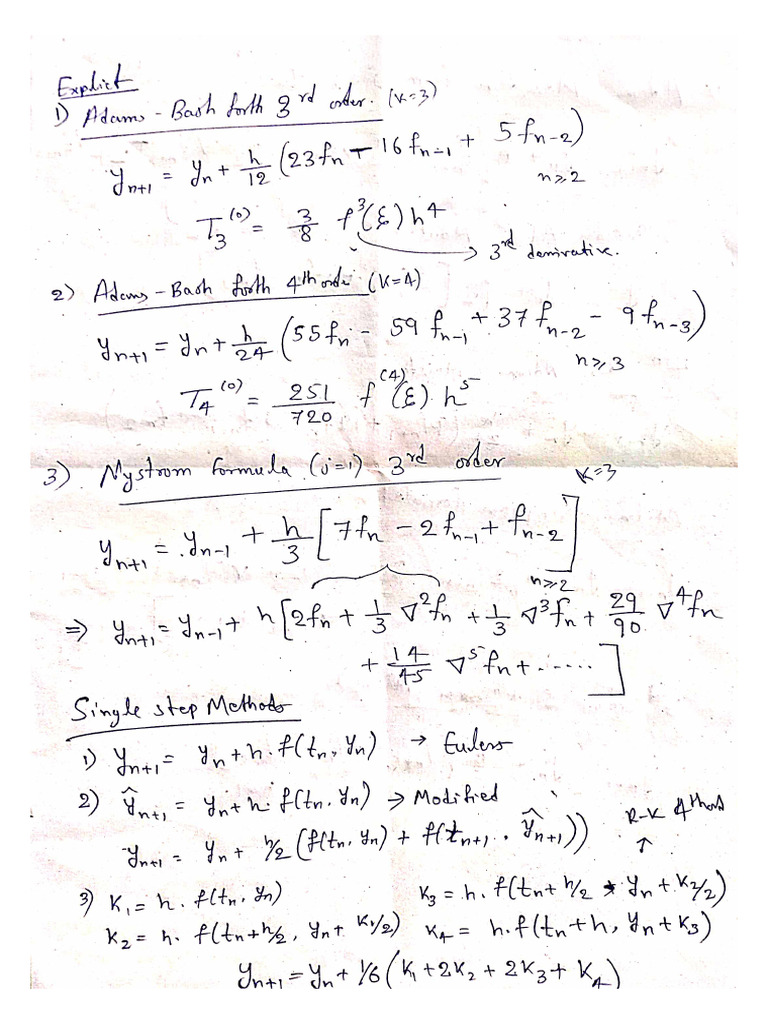 Explicit
1) Adams - Bash forth 3rd order. (K=3)
y_{n+1} = y_n + h/12 (23f_n - 16f_{n-1} + 5f_{n-2})
n≥2
T_3^{(0)} = 3/8 f^3(ξ) h^4
→ 3rd derivative.
2) Adams - Bash forth 4th order (K=4)
y_{n+1} = y_n + h/24 (55f_n - 59f_{n-1} + 37f_{n-2} - 9f_{n-3})
n≥3
T_4^{(0)} = 251/720 f^{(4)}(ξ) h^5
3) Nystrom formula (j=1) 3rd order
K=3
y_{n+1} = y_{n-1} + h/3 [7f_n - 2f_{n-1} + f_{n-2}]
n≥2
⇒ y_{n+1} = y_{n-1} + h[2f_n + 1/3 ∇^2 f_n + 1/3 ∇^3 f_n + 29/90 ∇^4 f_n
+ 14/45 ∇^5 f_n + ......]
Single step Methods
1) y_{n+1} = y_n + h. f(t_n, y_n) → Eulers
2) ŷ_{n+1} = y_n + h. f(t_n, y_n) → Modified
y_{n+1} = y_n + h/2 (f(t_n, y_n) + f(t_{n+1}, ŷ_{n+1}))
R-K 4th
↑
3) K_1 = h. f(t_n, y_n) K_3 = h. f(t_n + h/2, y_n + K_2/2)
K_2 = h. f(t_n + h/2, y_n + K_1/2) K_4 = h. f(t_n + h, y_n + K_3)
y_{n+1} = y_n + 1/6 (K_1 + 2K_2 + 2K_3 + K_4)